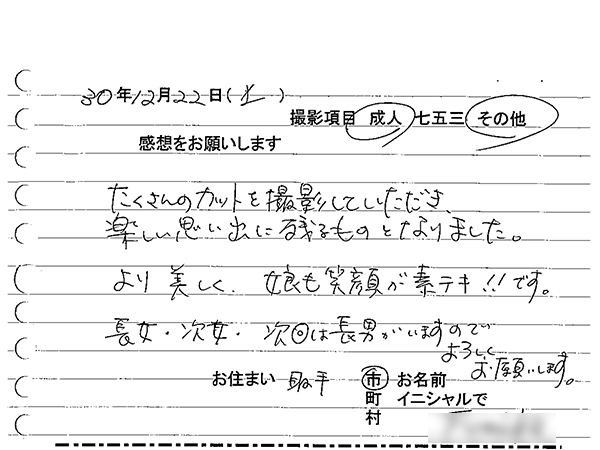 30年12月22日(土)
撮影項目 成人 七五三 その他
感想をお願いします
たくさんのカットを撮影していただき、
楽しい思い出に残るものとなりました。
より美しく、娘も笑顔が素テキ!!です。
長女・次女・次回は長男がいますので
よろしく
お願いします。
お住まい 取手 市 お名前
町 イニシャルで
村